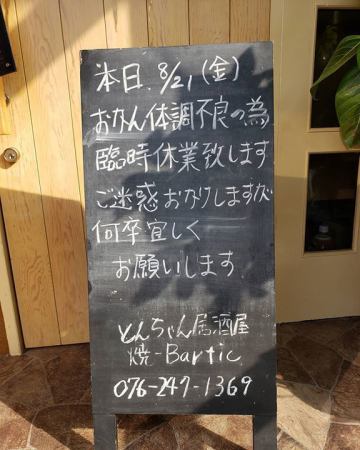 本日 8/21 (金)
おかん体調不良の為
臨時休業致します
ご迷惑おかけしますが
何卒宜しく
お願いします
とんちゃん居酒屋
燒-Bartic
076-247-1369